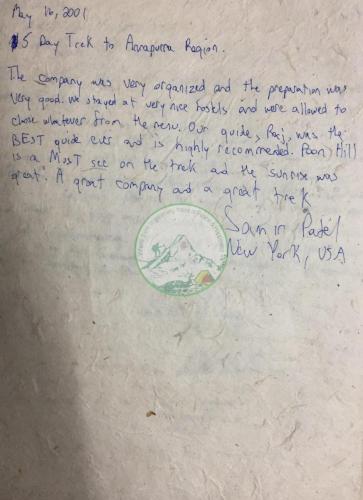 May 16, 2001
5 Day Trek to Annapurna Region.
The company was very organized and the preparation was
very good. We stayed at very nice hostels and were allowed to
chose whatever from the menu. Our guide, Raj, was the
BEST guide ever and is highly recommended. Poon Hill
is a MOST see on the trek and the sunrise was
great. A great company and a great trek
Samir Patel
New York, USA